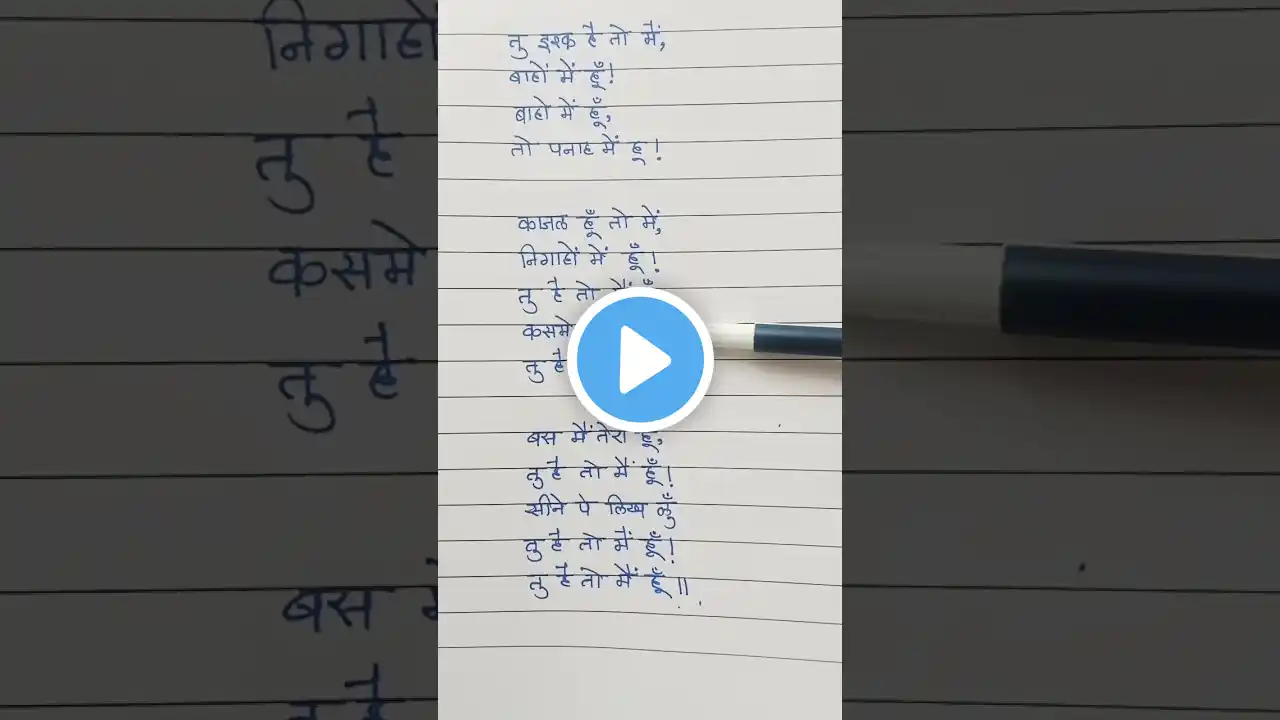 तु इश्क है तो मैं,
बाहों में हूँ!
बाहो में हूँ,
तो पनाह में हू!
काजल हूँ तो में,
निगाहों में हूँ!
तु है तो मैं हूँ
कसमे
तु है
बस मैं तेरा हूँ,
तु है तो मैं हूँ!
सीने पे लिख लुँ
तु है तो मैं हूँ!
तु है तो मैं हूँ!!